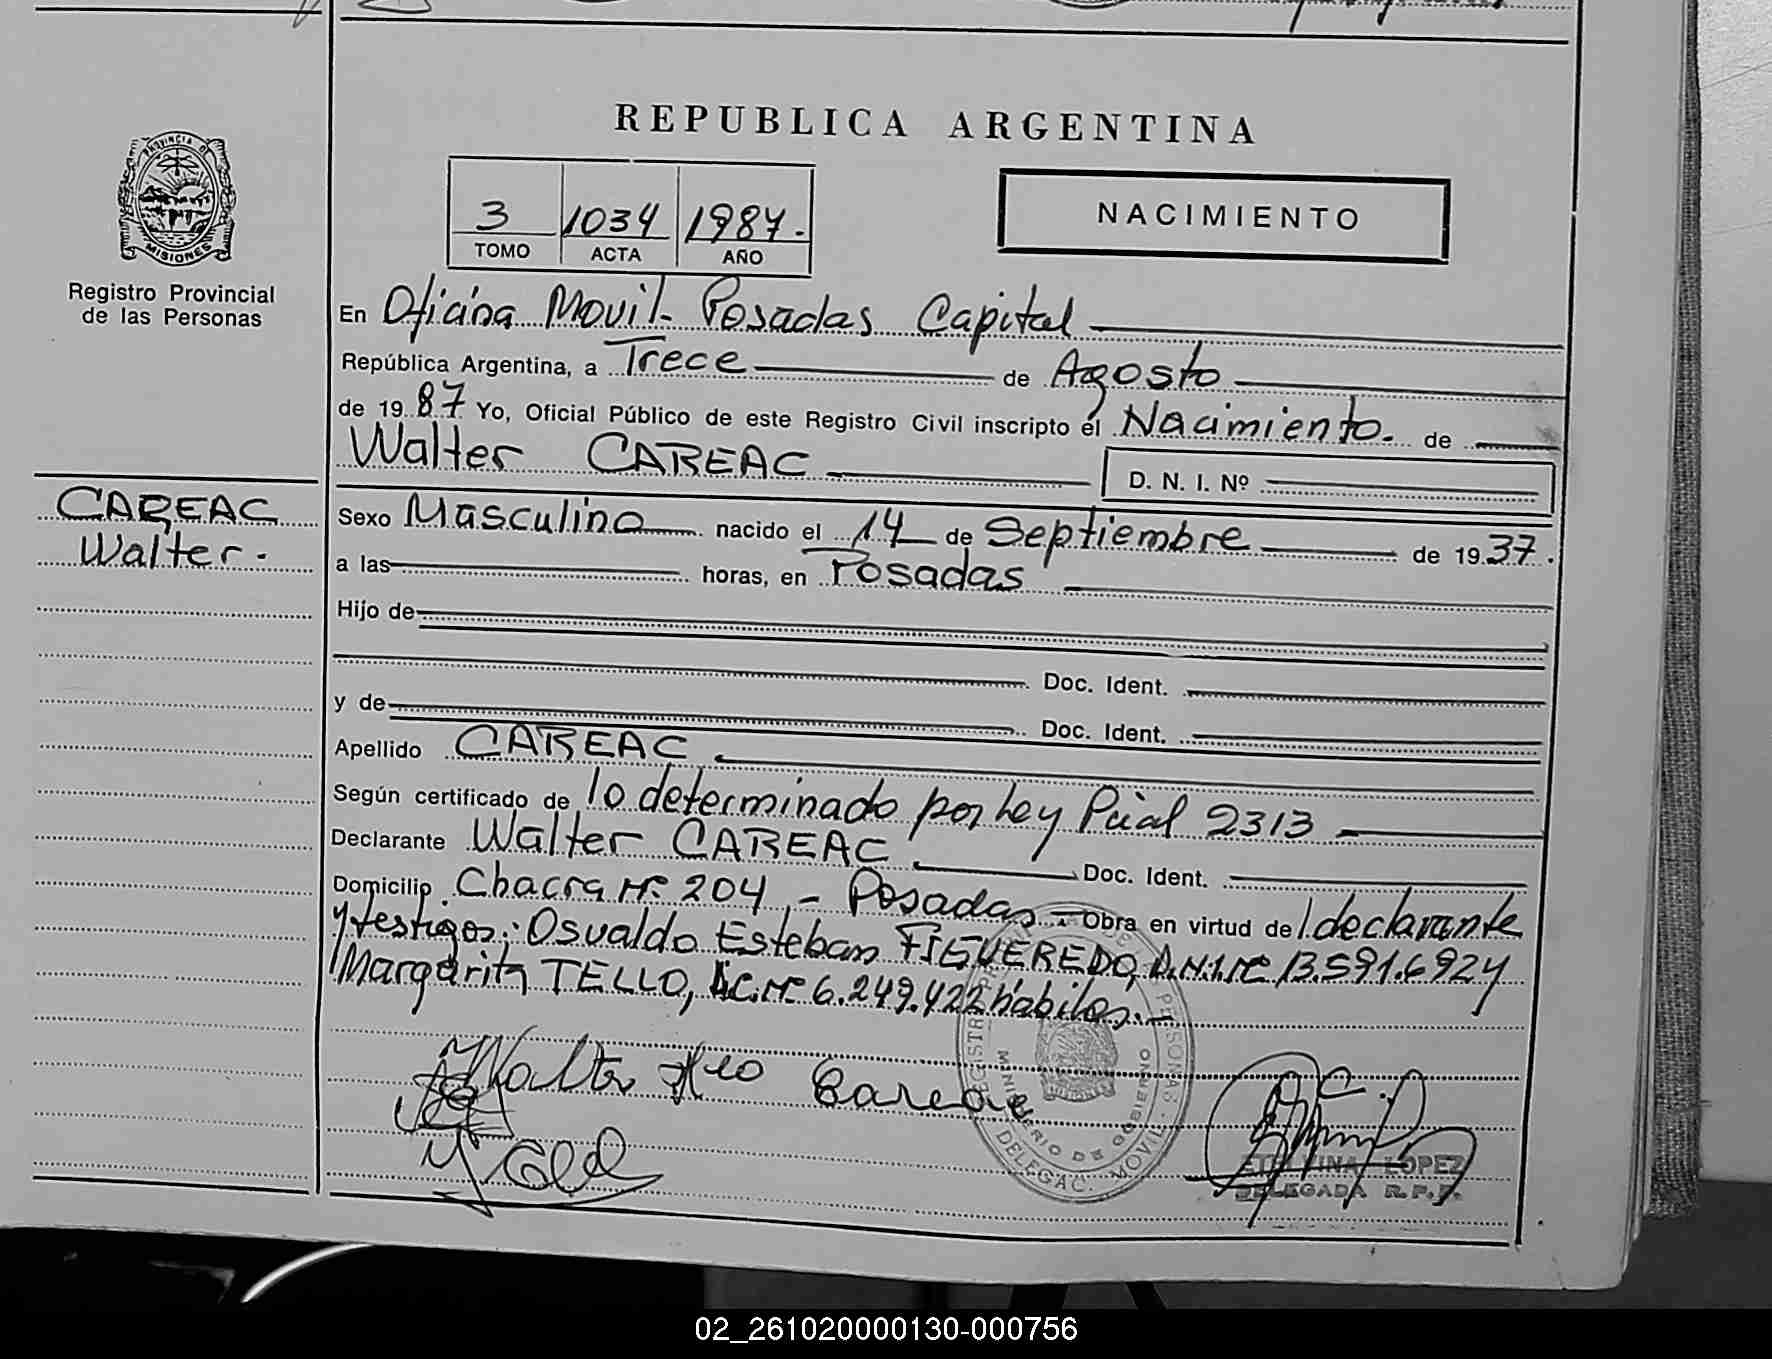 REPUBLICA ARGENTINA
PROVINCIA DE
MISIONES
Registro Provincial
de las Personas
3 1034 1987.-
TOMO ACTA AÑO
NACIMIENTO
En Oficina Movil- Posadas Capital
República Argentina, a Trece de Agosto
de 19 87 Yo, Oficial Público de este Registro Civil inscripto el Nacimiento. de
Walter CAREAC
D. N. I. Nº
CAREAC
Walter.-
Sexo Masculino nacido el 14 de Septiembre de 19 37.
a las horas, en Posadas
Hijo de
Doc. Ident.
y de Doc. Ident.
Apellido CAREAC
Según certificado de lo determinado por Ley Pcial 2313
Declarante Walter CAREAC Doc. Ident.
Domicilio Chacra Nº 204 - Posadas - Obra en virtud de l declarante
y testigos: Osvaldo Esteban FIGUEREDO, D.N.I. Nº 13.591.692 y
Margarita TELLO, L.C. Nº 6.249.422 hábiles.-
Walter Careac
REGISTRO PERSONAS
MINISTERIO DE GOBIERNO
DELEGAC. MOVIL
ETELVINA LOPEZ
DELEGADA R.P.P.
02_261020000130-000756